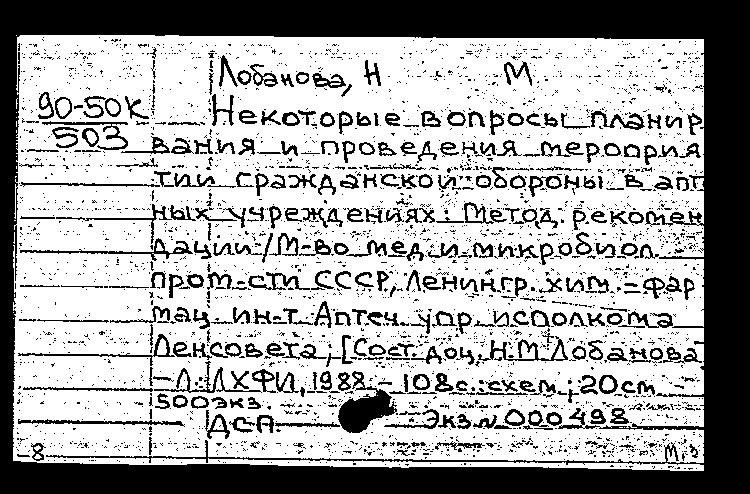 Лобанова, Н М
90-50К
503
Некоторые вопросы планир
вания и проведения мероприя
тии гражданской обороны в апт
ных учреждениях: Метод. рекомен
дации /М-во мед. и микробиол.
пром-сти СССР, Ленингр. хим.-фар
мац. ин-т. Аптеч. упр. исполкома
Ленсовета; [Сост. доц. Н.М Лобанова
-Л.: ЛХФИ, 1988. - 108с.: схем.; 20см
500экз.
ДСП. Экз. N 000498
8